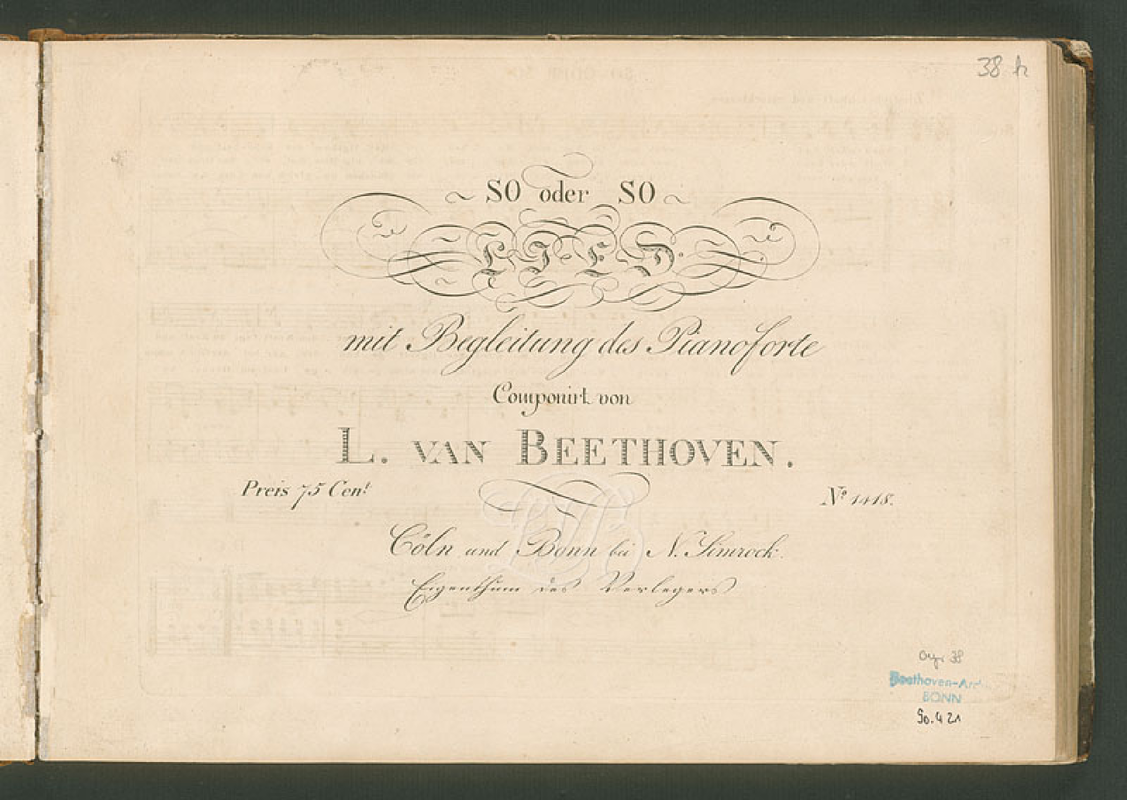 38 h
~ SO oder SO ~
LIED.
mit Begleitung des Pianoforte
Componirt von
L. VAN BEETHOVEN.
Preis 75 Cent
No 1418.
Cöln und Bonn bei N. Simrock.
Eigenthum des Verlegers
38
Beethoven-Ar
BONN